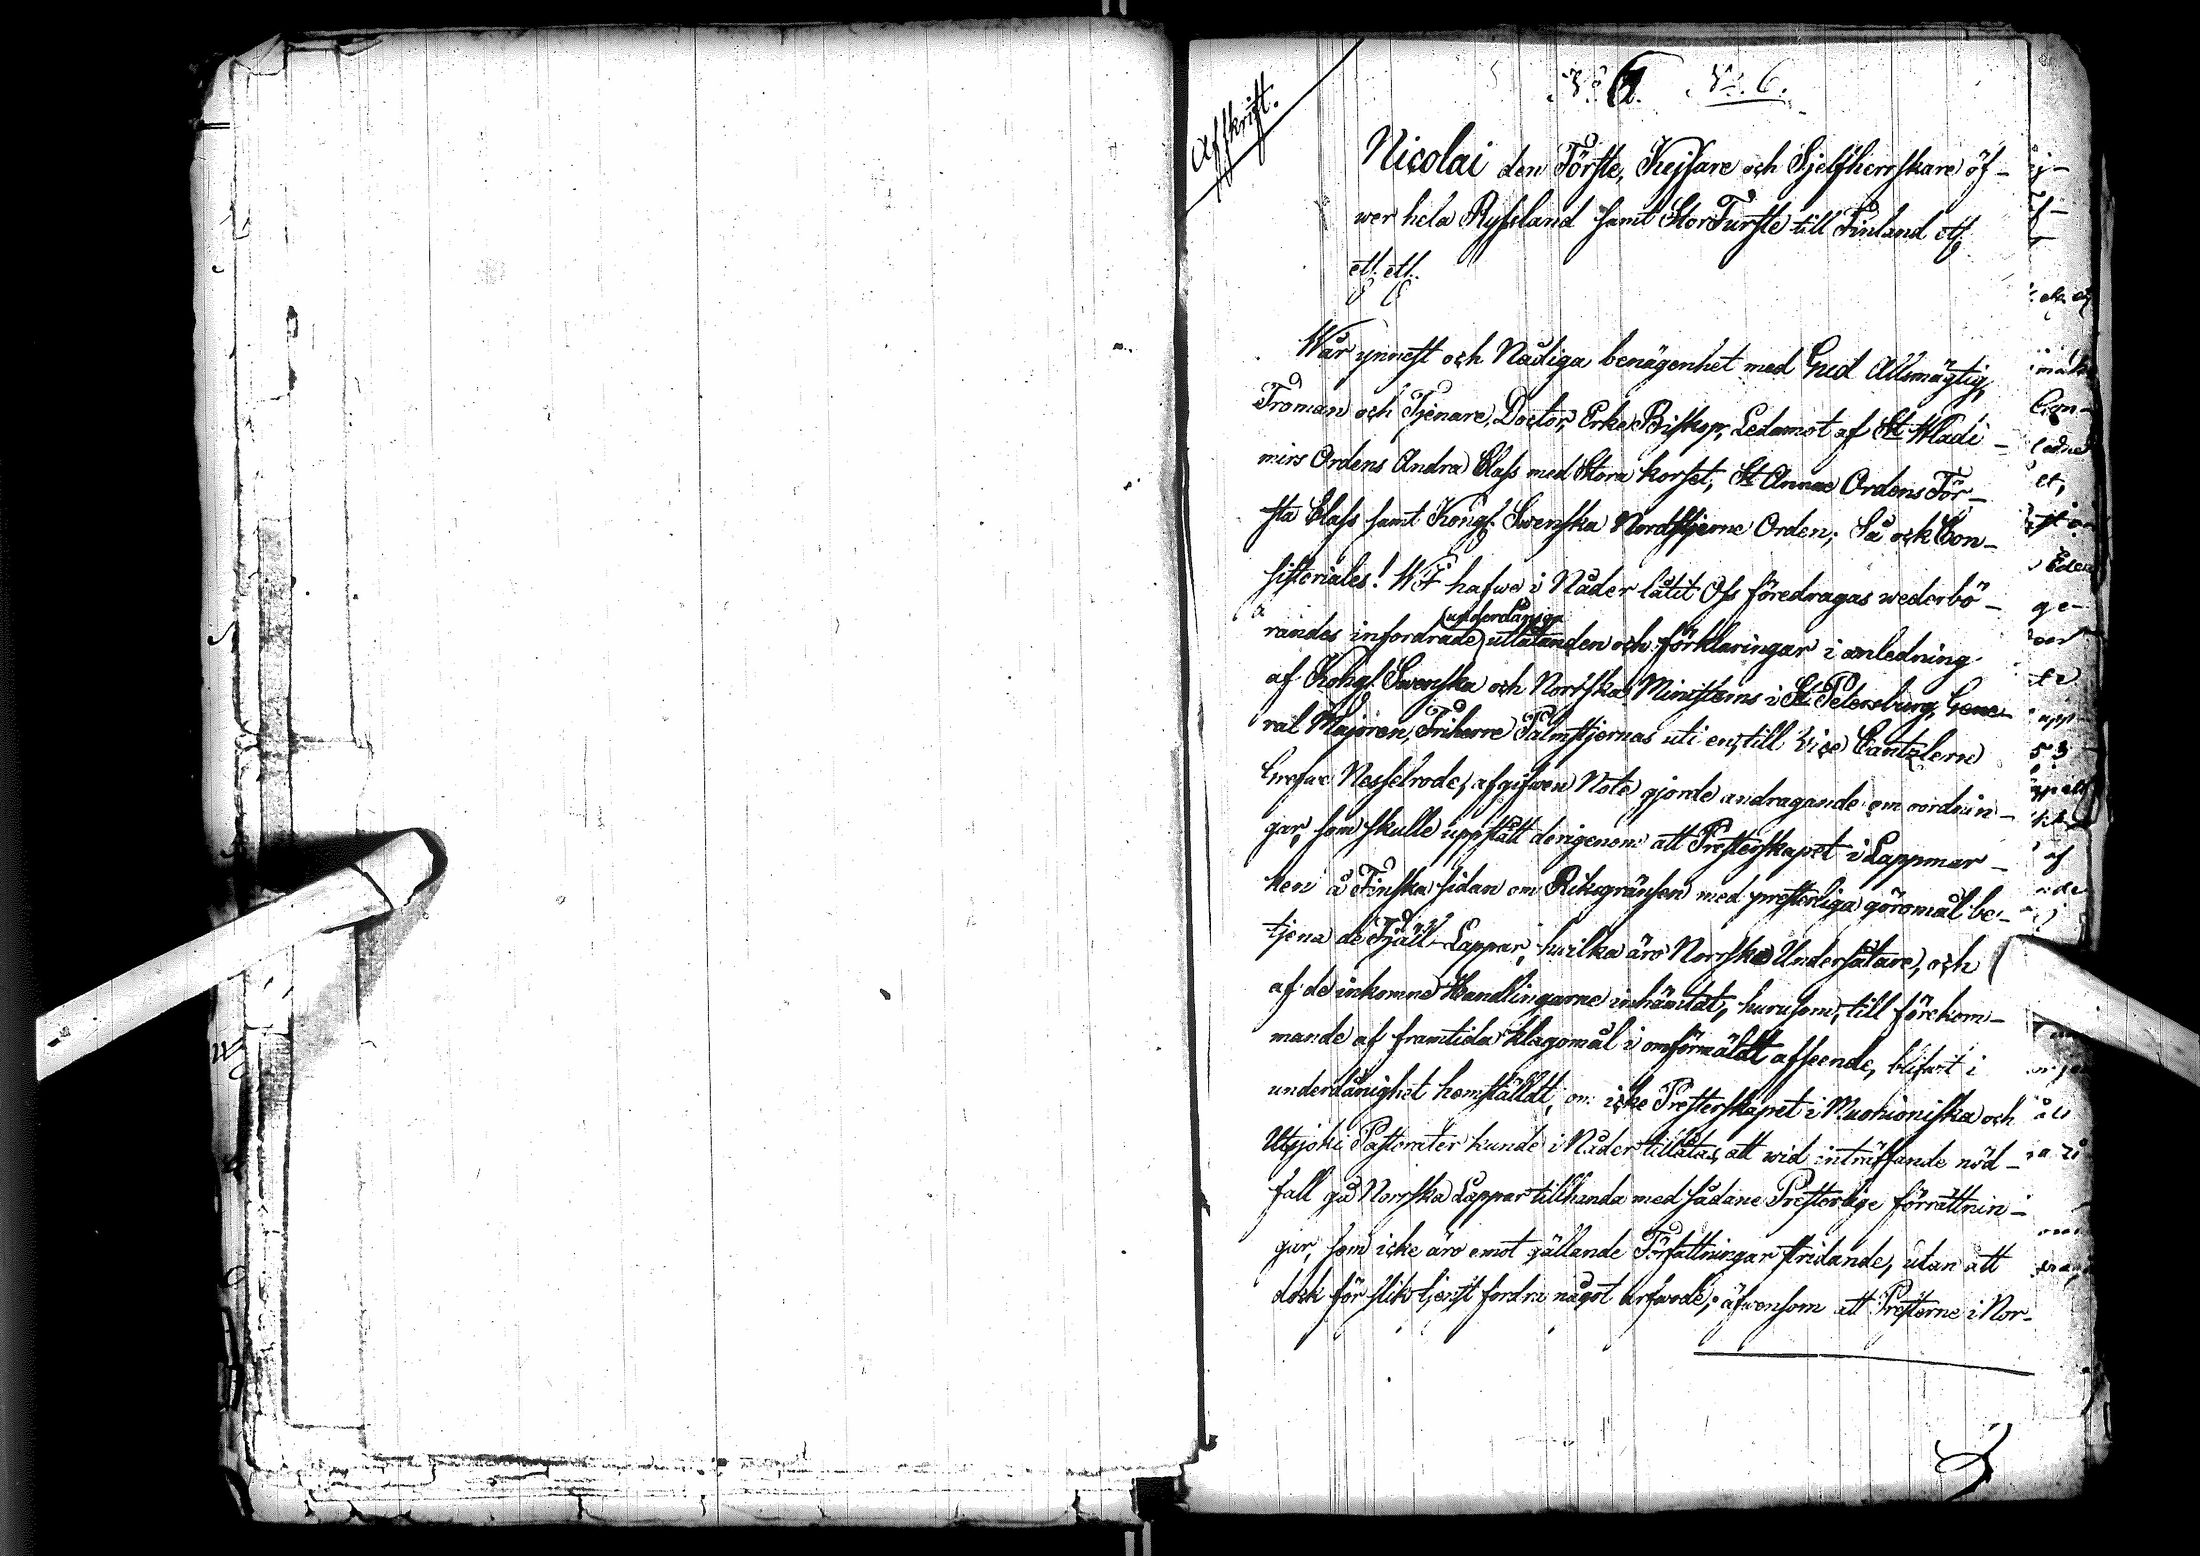 Afskrift.
N:o 6. N:o 6.
Nicolai den Förste, Kejsare och Sjelfherrskare öf-
wer hela Ryssland samt StorFurste till Finland etc.
etc. etc.
Wår ynnest och Nådiga benägenhet med Gud Allsmägtig,
Troman och Tjenare, Doctor, Erke Biskop, Ledamot af St Wladi-
mirs Ordens Andra Class med Stora korset, St Annae Ordens För-
sta Class samt Kongl. Swenska Nordstjerne Orden; Så ock Con-
sistoriales! Wi hafwe i Nåder låtit Oss föredragas wederbö-
randes infordrade underdåniga utlåtanden och förklaringar i anledning
af Kongl. Swenska och Norrska Ministerns i St Petersburg, Gene-
ral Majoren, Friherre Palmstjernas uti en, till Vice Cantzleren
Grefve Nesselrode, afgifwen Note gjorde andragande om oordnin-
gar, som skulle uppstått derigenom att Presterskapet i Lappmar-
ken å Finska sidan om Riksgränsen med presterliga göromål be-
tjena de Fjäll-Lappar, hwilka äro Norrska Undersåtare, och
af de inkomne Handlingarne inhämtat, hurusom, till förekom-
mande af framtida klagomål i omförmäldt afseende, blifwit i
underdånighet hemställdt, om icke Presterskapet i Muonioniska och
Utsjoki Pastorater kunde i Nåder tillåtas, att wid inträffande nöd-
fall gå Norrska Lappar tillhanda med sådane Presterlige förrättnin-
gar, som icke äro emot gällande Författningar stridande, utan att
dock för slik tjenst fordra något arfwode; äfwensom att Presterne i Nor-